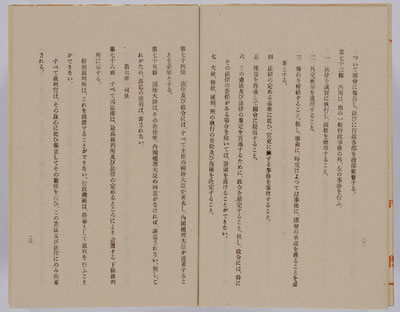 ついて國會に報告し、並びに行政各部を指揮監督する。
第七十三條　内閣は、他の一般行政事務の外、左の事務を行ふ。
一　法律を誠實に執行し、國務を總理すること。
二　外交關係を處理すること。
三　條約を締結すること。但し、事前に、時宜によつては事後に、國會の承認を經ることを必
要とする。
四　法律の定める基準に從ひ、官吏に關する事務を掌理すること。
五　豫算を作成して國會に提出すること。
六　この憲法及び法律の規定を實施するために、政令を制定すること。但し、政令には、特に
その法律の委任がある場合を除いては、罰則を設けることができない。
七　大赦、特赦、減刑、刑の執行の免除及び復權を決定すること。
第七十四條　法律及び政令には、すべて主任の國務大臣が署名し、内閣總理大臣が連署するこ
とを必要とする。
第七十五條　國務大臣は、その在任中、内閣總理大臣の同意がなければ、訴追されない。但し、こ
れがため、訴追の權利は、害されない。
第六章　司法
第七十六條　すべて司法權は、最高裁判所及び法律の定めるところにより設置する下級裁判
所に屬する。
特別裁判所は、これを設置することができない。行政機關は、終審として裁判を行ふこと
ができない。
すべて裁判官は、その良心に從ひ獨立してその職權を行ひ、この憲法及び法律にのみ拘束
される。